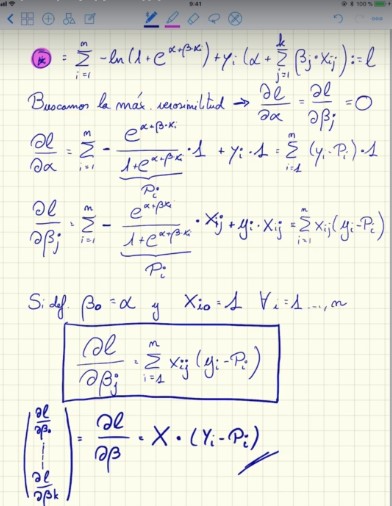 9:41
100 %
(*) = Σ_{i=1}^{n} -ln(1+e^{α+β·x_i}) + y_i(α + Σ_{j=1}^{k} β_j·x_{ij}) := l
Buscamos la máx. verosimilitud → ∂l/∂α = ∂l/∂β_j = 0
∂l/∂α = Σ_{i=1}^{n} - e^{α+βx_i}/(1+e^{α+β·x_i}) · 1 + y_i·1 = Σ_{i=1}^{n} (y_i - P_i)·1
P_i
∂l/∂β_j = Σ_{i=1}^{n} - e^{α+βx_i}/(1+e^{α+β·x_i}) · x_{ij} + y_i·x_{ij} = Σ_{i=1}^{n} x_{ij}(y_i - P_i)
P_i
Si def. β_0 = α y x_{i0} = 1 ∀ i = 1 ..., n
∂l/∂β_j = Σ_{i=1}^{n} x_{ij}(y_i - P_i)
(∂l/∂β_0 ⋮ ∂l/∂β_k) = ∂l/∂β = X · (Y_i - P_i)